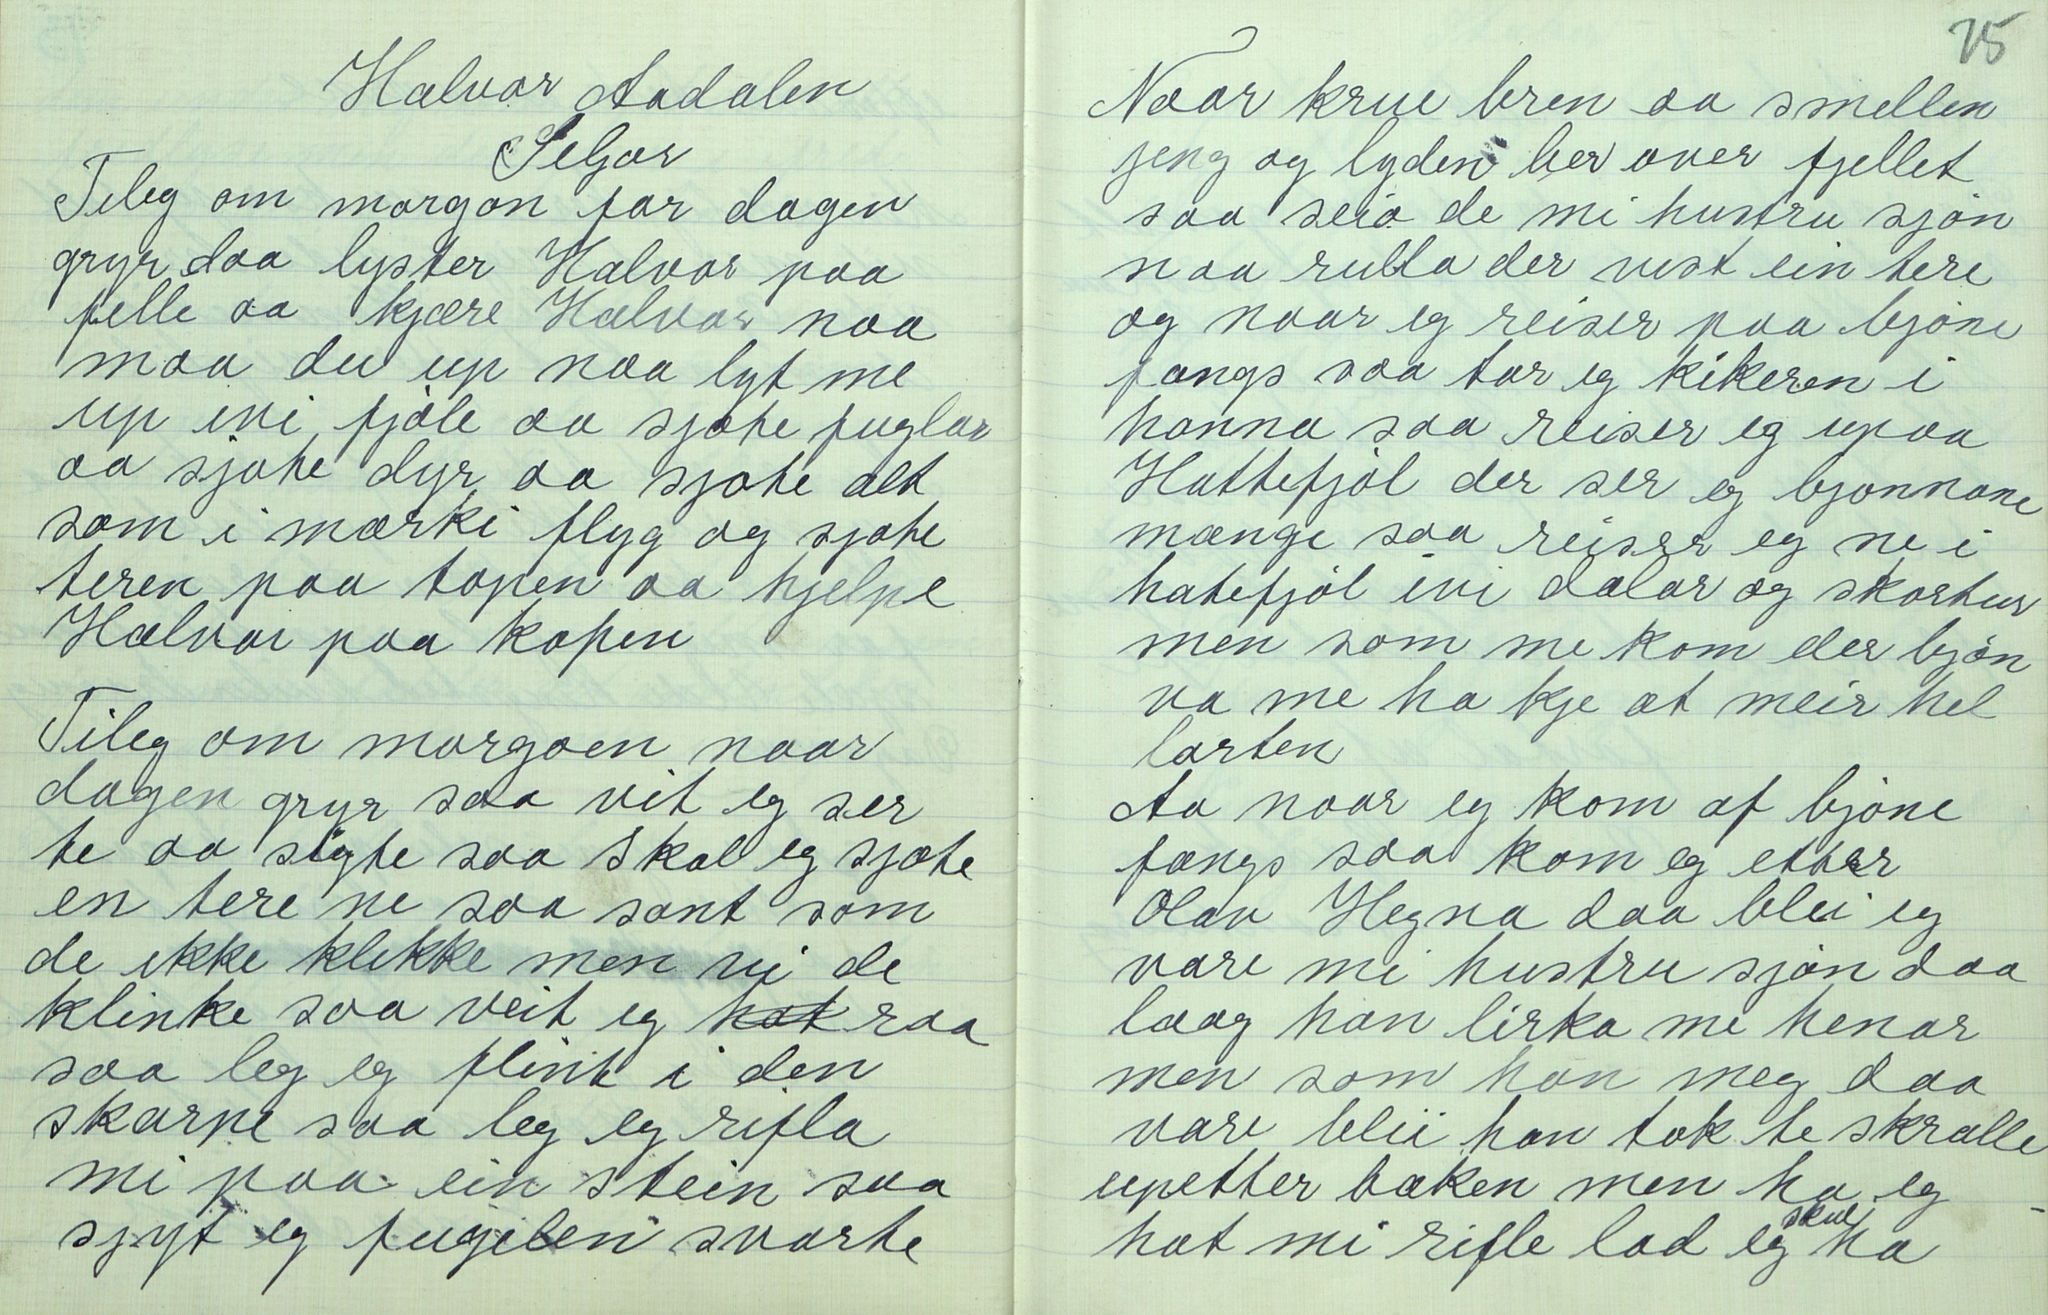 Halvor Aadalen
Seljor
Tileg om morgon for dagen
gryr daa lyster Halvor paa
felle aa kjære Halvor naa
maa du up naa lyt me
up ivi fjøle aa sjote fuglar
aa sjote dyr aa sjote alt
som i mærki flyg og sjote
teren paa topen aa hjelpe
Halvor paa kopen
Tileg om morgoen naar
dagen gryr saa vit eg ser
te aa sigte saa skal eg sjote
en tere ne saa sant som
de ikke klikke men vi de
klinke saa veit eg raa
saa leg eg flint i den
skarpe saa leg eg rifla
mi paa ein stein saa
sjyt eg fugelen svarte
75
Naar krue bren aa smellen
jeng og lyden ber over fjellet
saa seia de mi hustru sjøn
naa rulla der vist ein tere
og naar eg reiser paa bjøne
fangs saa tar eg kikeren i
hanna saa reiser eg upaa
Hattefjøl der ser eg bjønnane
mænge saa reiser eg ne i
hatefjøl ivi dalar og skortur
men som me kom der bjøn
va me ha kje at meir hel
larten
Aa naar eg kom af bjøne
fangs saa kom eg etter
Olav Hegna daa blei eg
vare mi hustru sjøn daa
laag han lirka me henar
men som han meg daa
vare bleii han tok te skralle
upetter bæken men ha eg
skul
hat mi rifle lad eg ha